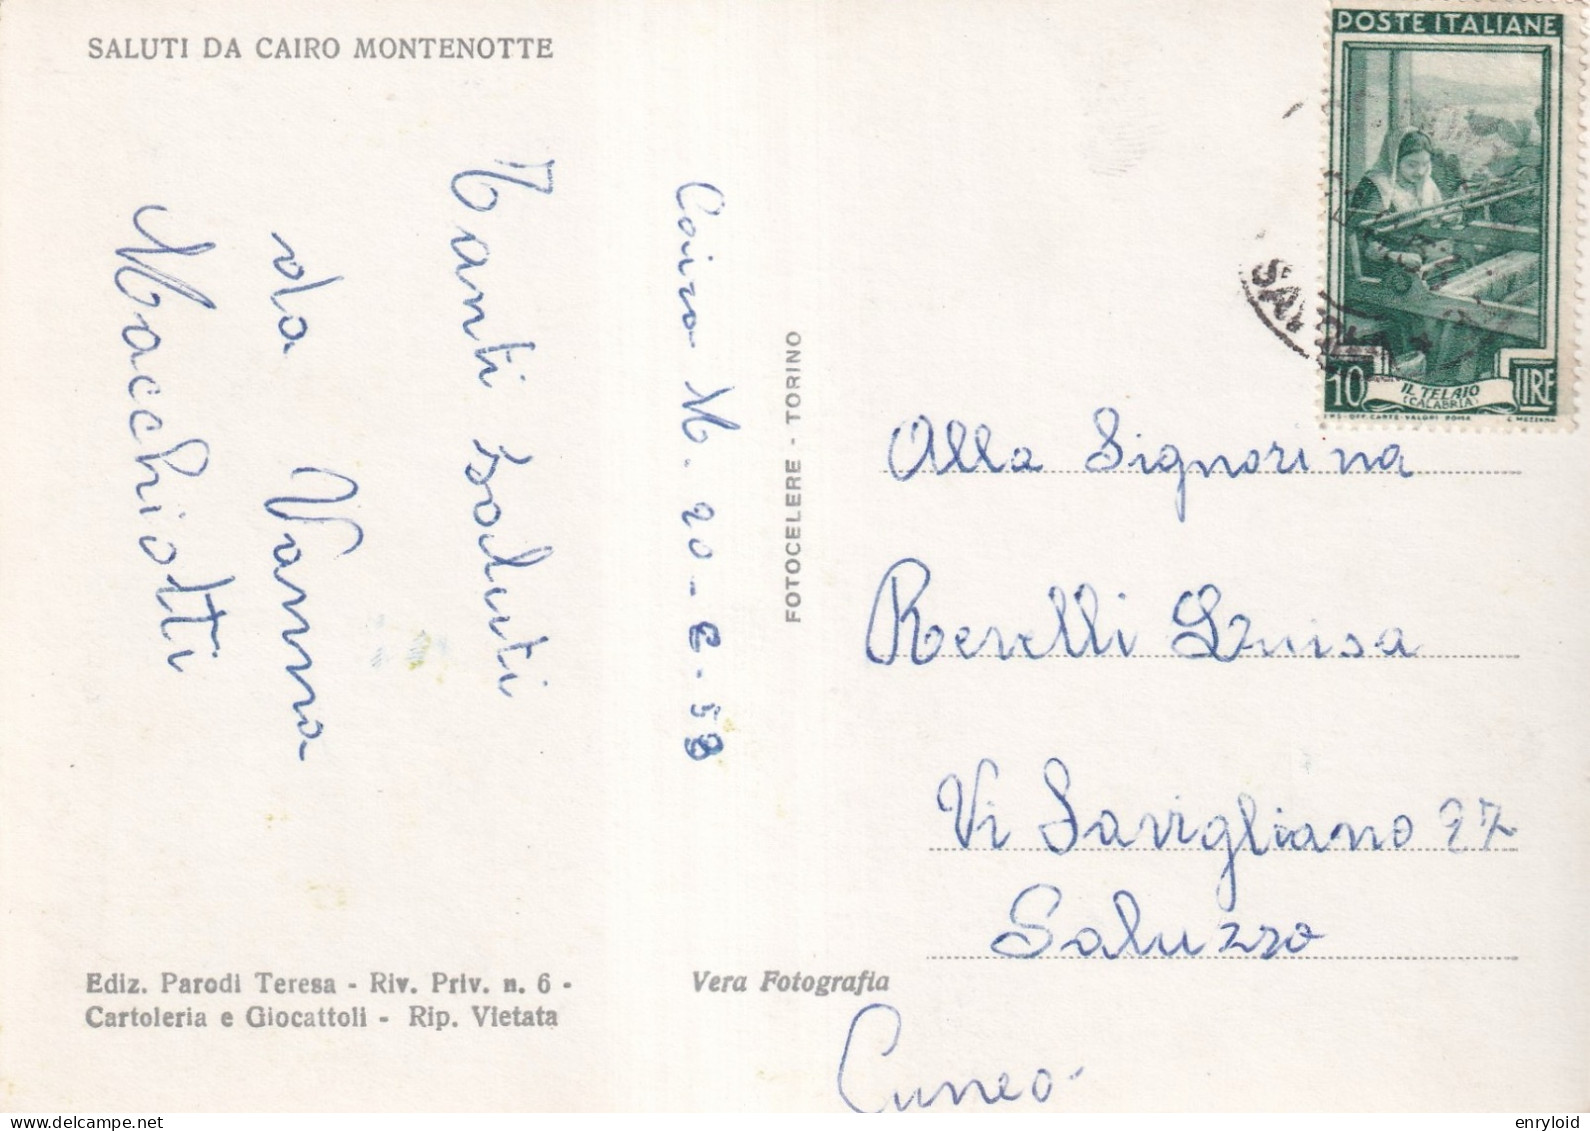 SALUTI DA CAIRO MONTENOTTE
Tanti saluti
da Vanna
Macchiotti
Cairo M. 20-8-58
Ediz. Parodi Teresa - Riv. Priv. n. 6 -
Cartoleria e Giocattoli - Rip. Vietata
FOTOCELERE - TORINO
Vera Fotografia
POSTE ITALIANE
10 LIRE
IL TELAIO
(CALABRIA)
Alla Signorina
Revelli Luisa
Vi Savigliano 27
Saluzzo
Cuneo
enryloid